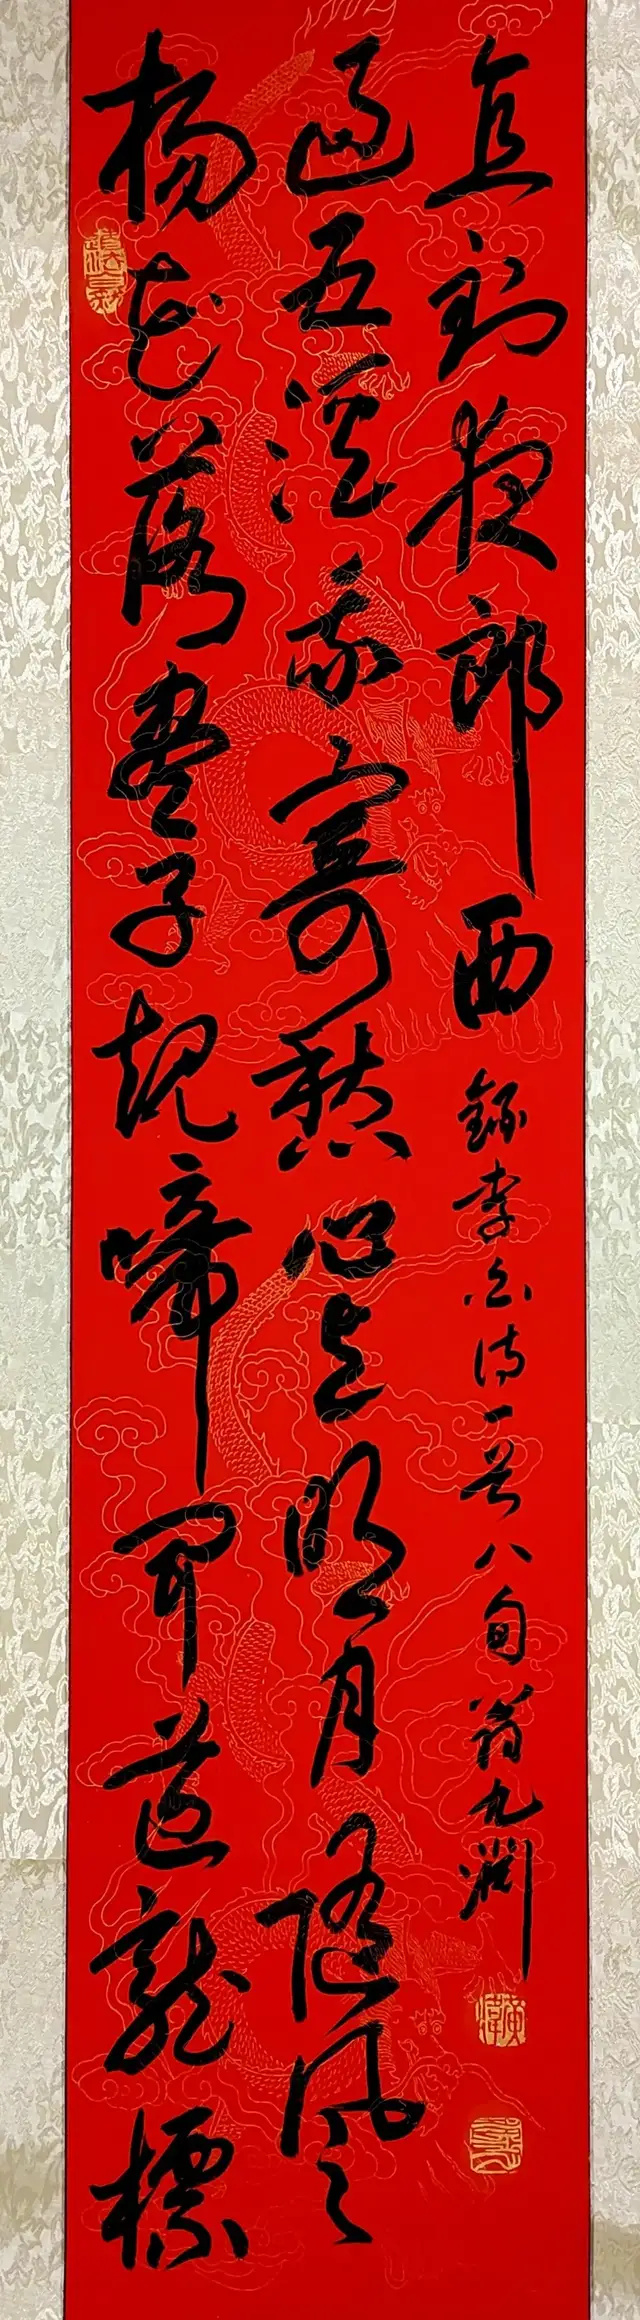 楊花落盡子規啼聞道龍標
過五溪我寄愁心与明月隨風
直到夜郎西
錄李白詩一首八旬翁九淵